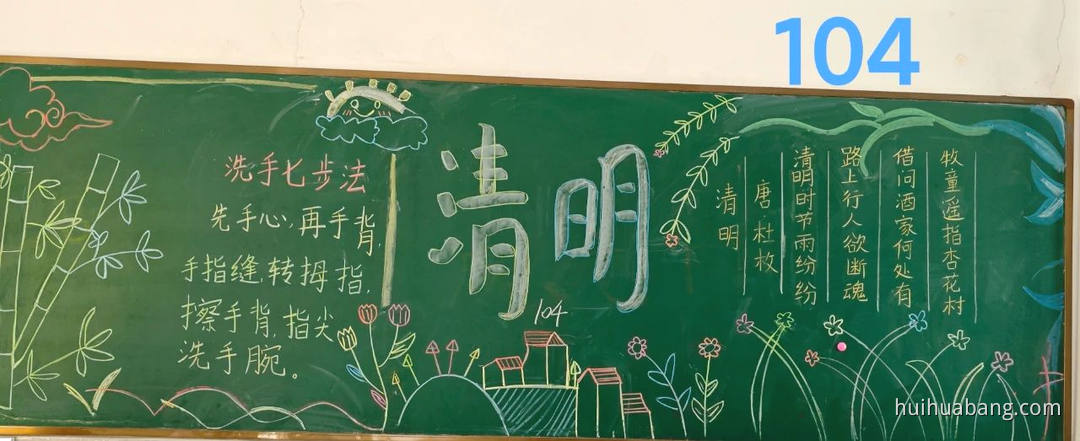 104
洗手七步法
先手心,再手背,
手指缝,转拇指,
擦手背,指尖
洗手腕。
清明
104
清明
唐 杜枚
清明时节雨纷纷
路上行人欲断魂
借问酒家何处有
牧童遥指杏花村
huihuabang.com